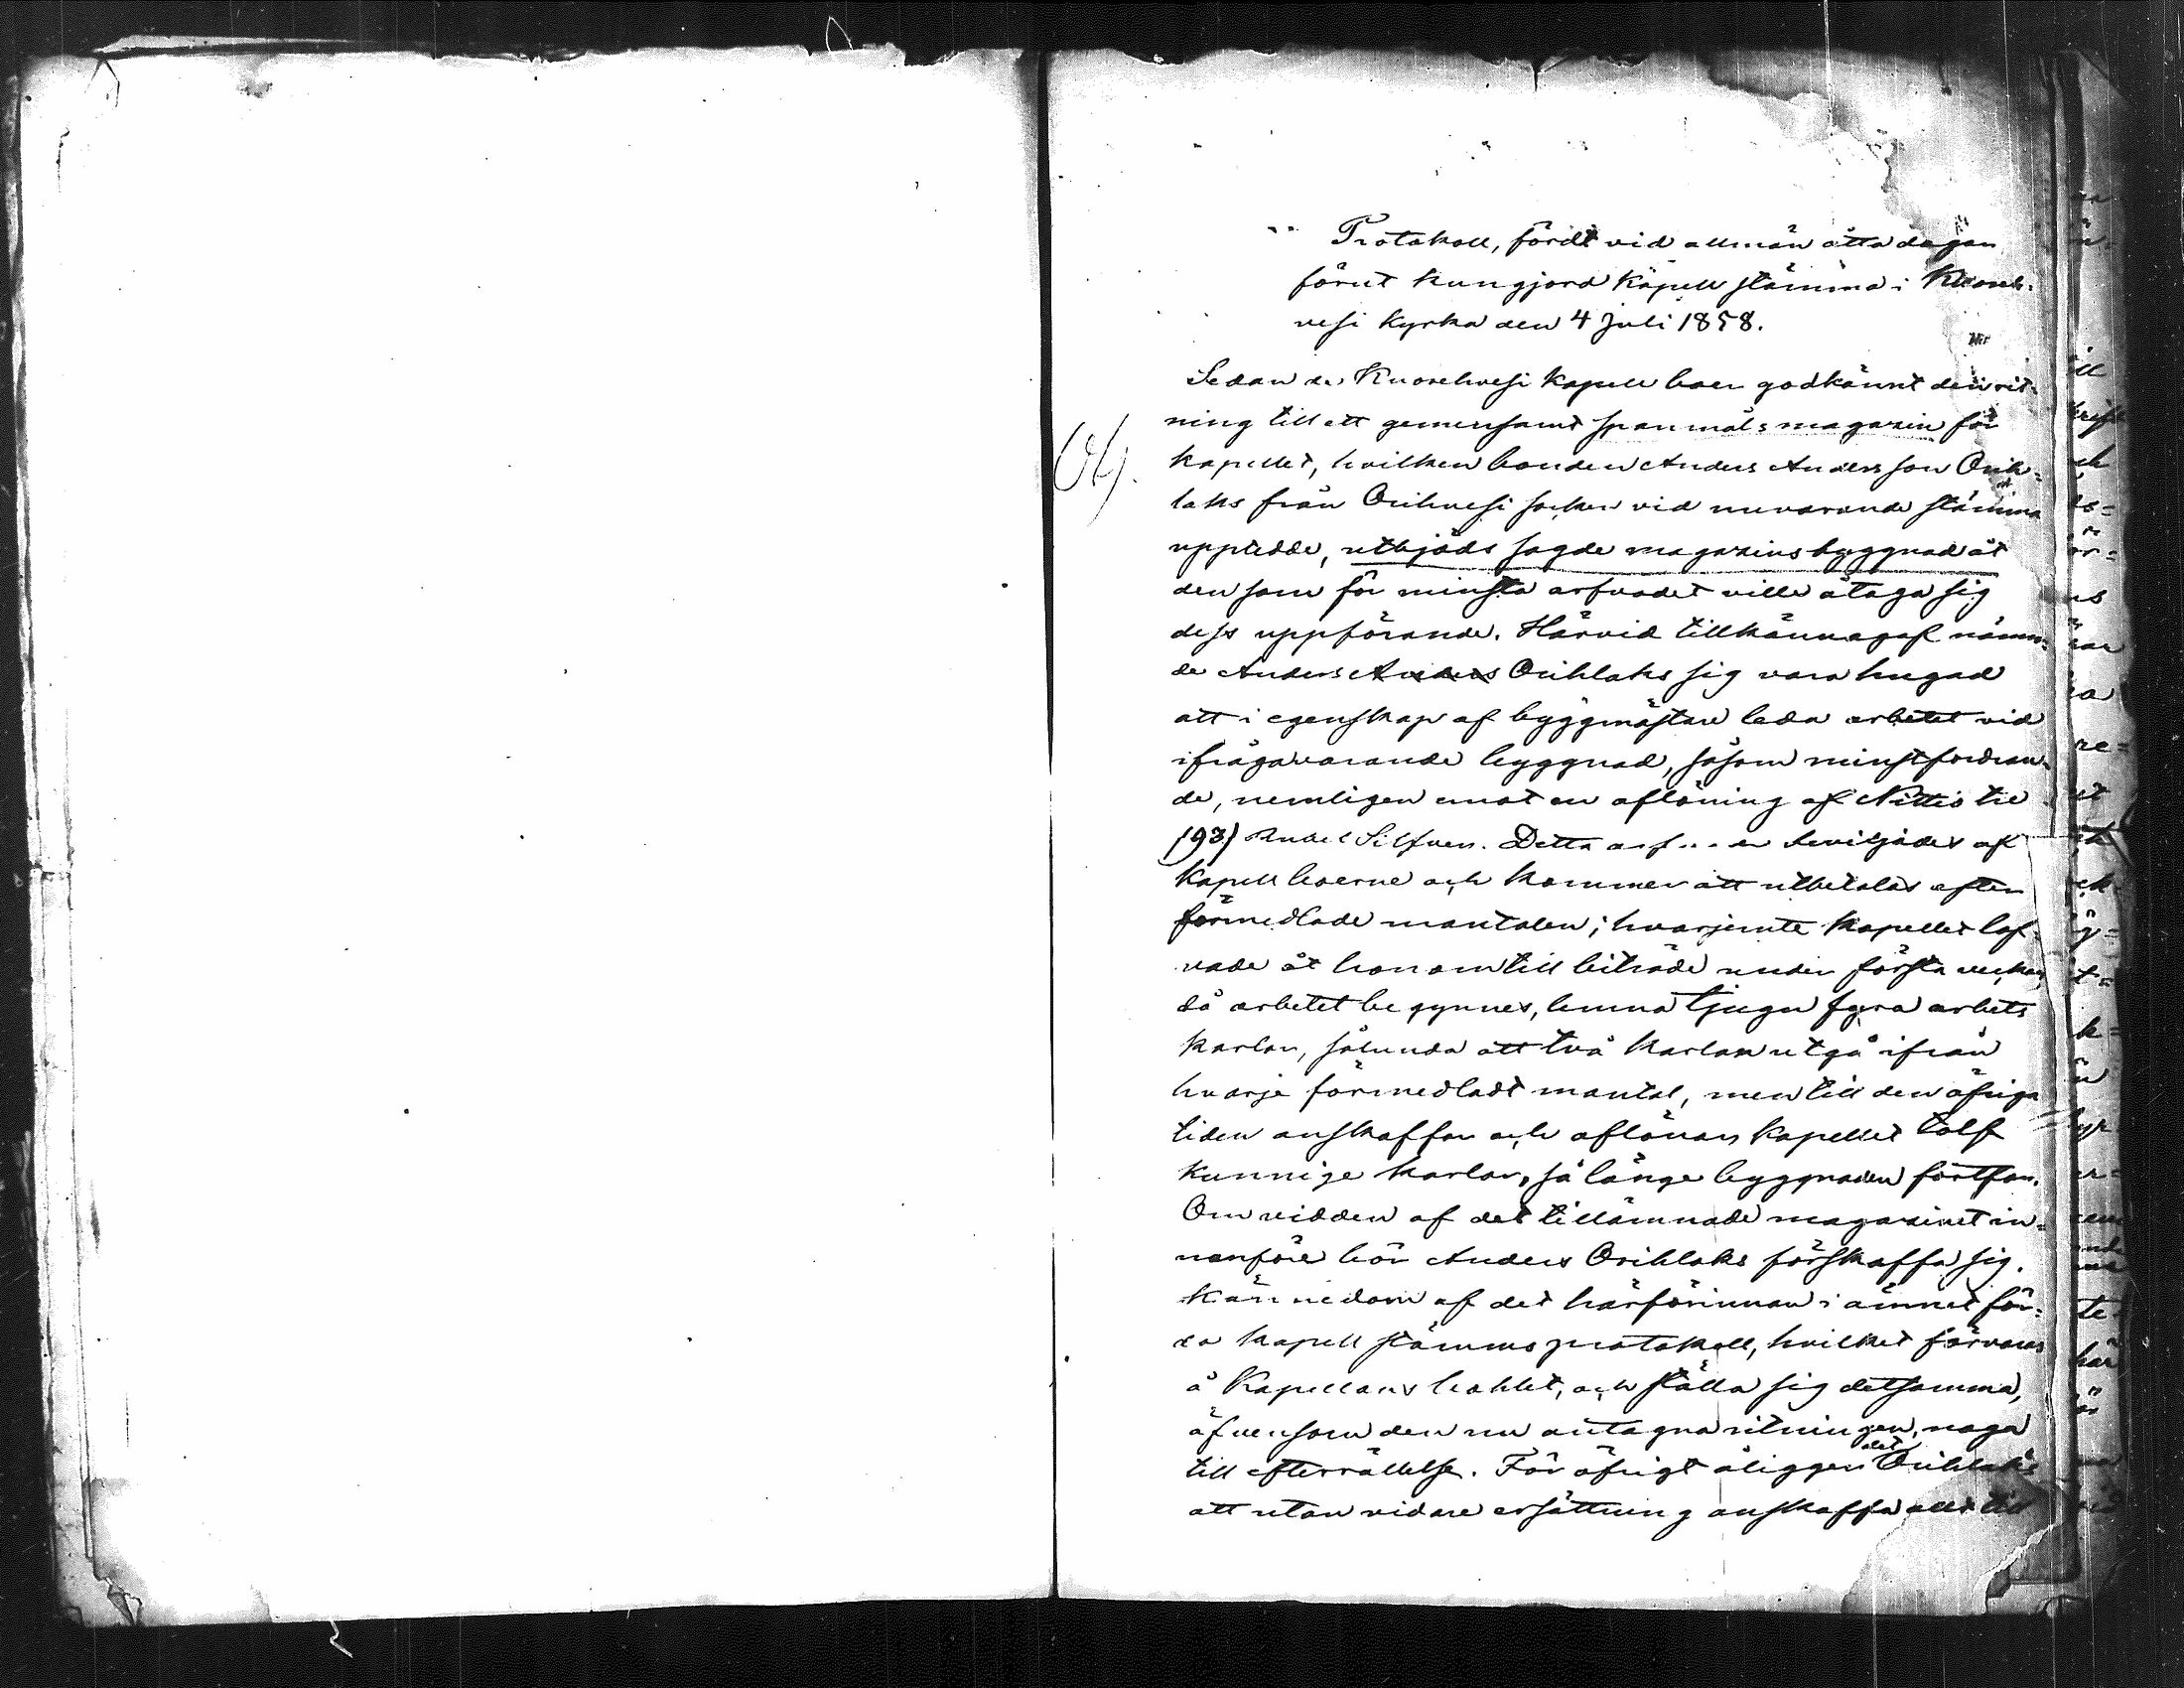 Protokoll, fördt vid allmän åtta dagar
förut kungjord Kapell stämma i Kuoreh-
vesi kyrka den 4 Juli 1858.
Sedan de Kuorehvesi kapell boer godkännt den rit-
ning till ett gemensamt spanmåls magazin för
kapellet, hvilken bonden Anders Andersson Orih-
laks från Orihvesi socken vid nuvarande stämma
uppredde, utbjöds sagde magazins byggnad åt
den som för minsta arfvodet ville åtaga sig
dess uppförande. Härvid tillkännagaf nämn-
de Anders Anders Orihlaks sig vara hugad
att i egenskap af byggmästare leda arbetet vid
ifrågavarande byggnad, såsom minstfordran-
de, nemligen emot en aflöning af Nittio tre
(93) Rubel Silfver. Detta beviljades af
Kapell boerne och kommer att utbetalas efter
förmedlade mantalen; hvarjemte kapellet lof-
vade åt honom till biträde under första veckan,
då arbetet begynnes, lemna tjugu fyra arbets
karlar, sålunda att två karlar utgå ifrån
hvarje förmedladt mantal, men till den öfriga
tiden anskaffar och aflönar kapellet tolf
kunnige karlar, så länge byggnaden fortfar.
Om vidden af det tillämnade magazinet in-
nanföre bör Anders Orihlaks förskaffa sig
kännedom af det härförinnan i ämnet för-
da kapell stämms protokoll, hvilket förvaras
å Kapellans bohlet, och ställa sig detsamma,
äfvensom den nu antagna ritningen, noga
till efterrättelse. För öfrigt åligger det Orihlaks
att utan vidare ersättning anskaffa allt till